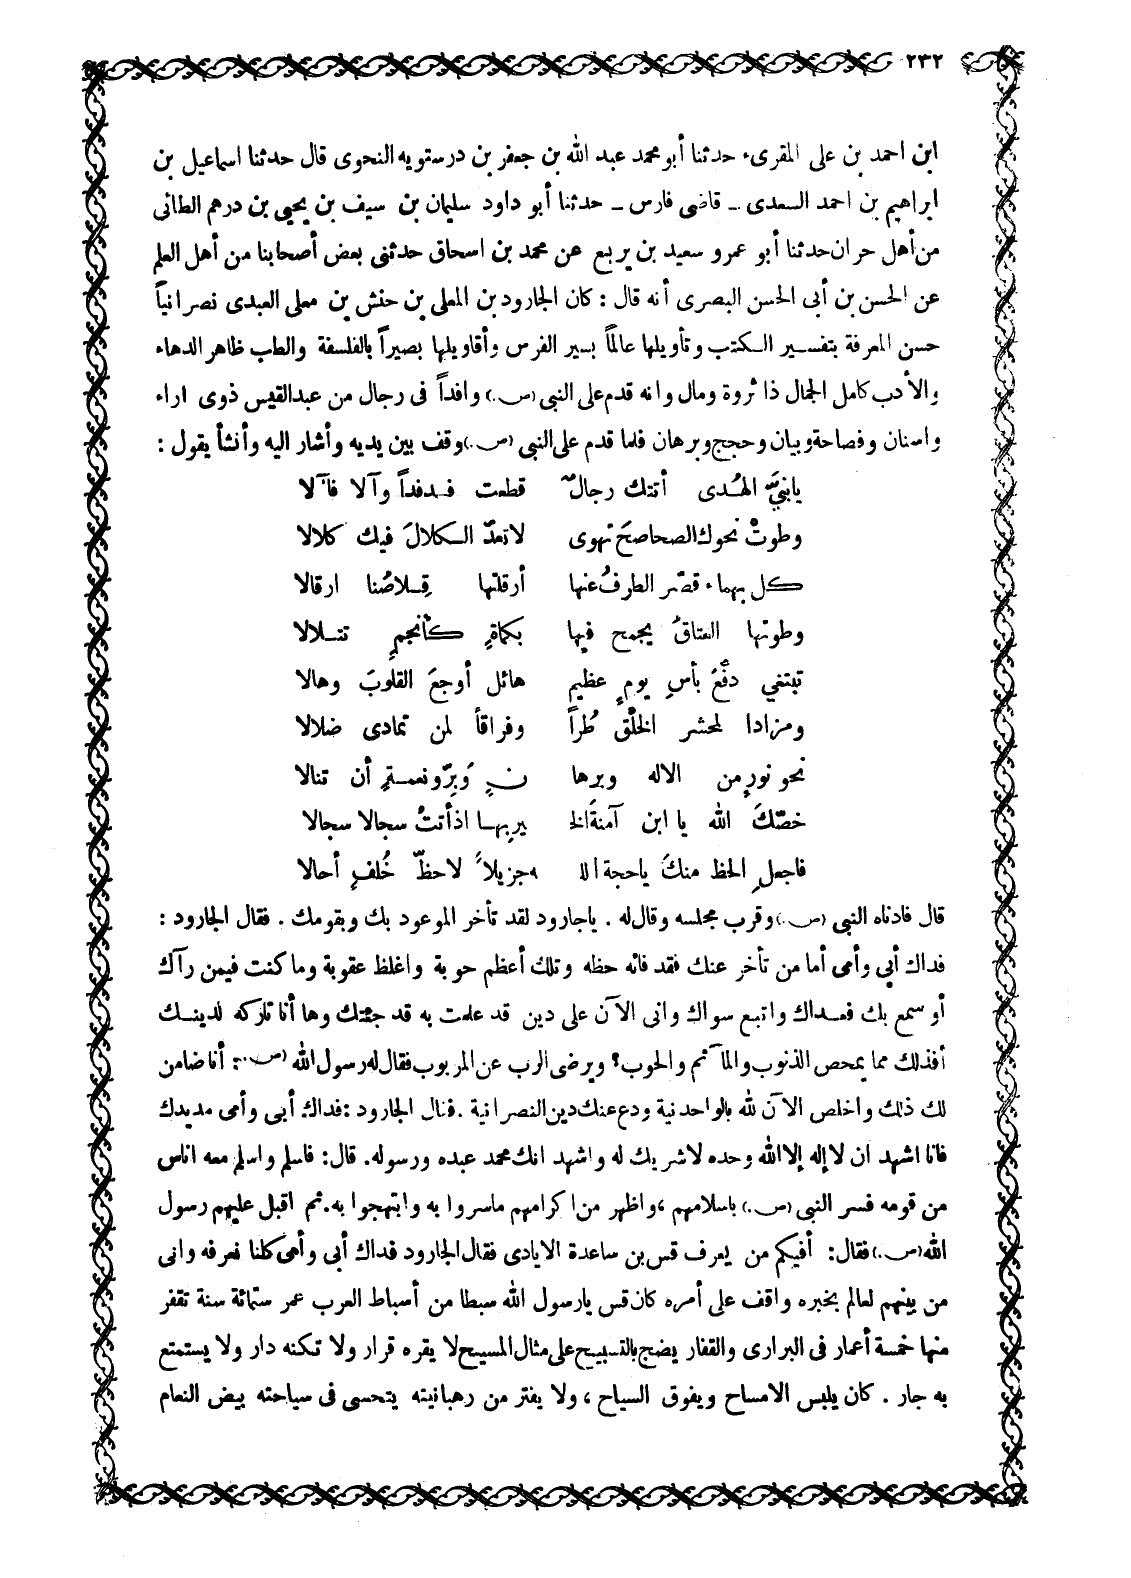 ٢٣٢
ابن احمد بن على المقرىء حدثنا أبو محمد عبد الله بن جعفر بن درستويه النحوى قال حدثنا اسماعيل بن
ابراهيم بن احمد السعدى ـ قاضى فارس ـ حدثنا أبو داود سليمان بن سيف بن يحيى بن درهم الطائى
من أهل حران حدثنا أبو عمرو سعيد بن يربع عن محمد بن اسحاق حدثنى بعض أصحابنا من أهل العلم
عن الحسن بن أبى الحسن البصرى أنه قال : كان الجارود بن المعلى بن حنش بن معلى العبدى نصرانياً
حسن المعرفة بتفسير الكتب وتأويلها عالماً بسير الفرس وأقاويلها بصيراً بالفلسفة والطب ظاهر الدهاء
والأدب كامل الجمال ذا ثروة ومال وانه قدم على النبى (ص.) وافداً فى رجال من عبدالقيس ذوى اراء
واسنان وفصاحة وبيان وحجج وبرهان فلما قدم على النبى (ص.) وقف بين يديه وأشار اليه وأنشأ يقول :
يانبيَّ الهُدى أتتك رجالٌ قطعت فدفداً وآلا فآلا
وطوتْ نحوك الصحاصحَ تهوى لاتعدّ الكلالَ فيك كلالا
كل بهماء قصّر الطرفُ عنها أرقلتها قِلاصُنا ارقالا
وطوتها العتاقُ يجمح فيها بكماةٍ كأنجمٍ تتلالا
تبتغي دفْعَ بأسِ يومٍ عظيم هائل أوجعَ القلوبَ وهالا
ومزادا لمحشر الخلْق طُراً وفراقاً لمن تمادى ضلالا
نحو نورٍ من الاله وبرها نٍ وَبِرّ ونعمةٍ أن تنالا
خصّكَ الله يا ابن آمنةَ الخ يرِ بها اذ أتتْ سجالا سجالا
فاجعلِ الحظ منكَ ياحجة الل ه جزيلاً لاحظّ خُلفٍ أحالا
قال فادناه النبى (ص.) وقرب مجلسه وقال له . ياجارود لقد تأخر الموعود بك وبقومك . فقال الجارود :
فداك أبي وأمى أما من تأخر عنك فقد فاته حظه وتلك أعظم حوبة واغلظ عقوبة وما كنت فيمن رآك
أو سمع بك فعداك واتبع سواك وانى الآن على دين قد علمت به قد جئتك وها أنا تاركه لدينك
أفذلك مما يمحص الذنوب والمآثم والحوب؟ ويرضى الرب عن المربوب فقال له رسول الله (ص.): أنا ضامن
لك ذلك واخلص الآن لله بالواحدنية ودع عنك دين النصرانية . فنال الجارود : فداك أبى وأمى مد يدك
فانا اشهد ان لا إله إلا الله وحده لا شريك له واشهد انك محمد عبده ورسوله. قال: فاسلم واسلم معه اناس
من قومه فسر النبى (ص.) باسلامهم ، واظهر من اكرامهم ماسروا به وابتهجوا به. ثم اقبل عليهم رسول
الله (ص.) فقال : أفيكم من يعرف قس بن ساعدة الايادى فقال الجارود فداك أبى وأمى كلنا نعرفه وانى
من بينهم لعالم بخبره واقف على أمره كان قس يارسول الله سبطا من أسباط العرب عمر ستمائة سنة تقفر
منها خمسة أعمار فى البرارى والقفار يضج بالتسبيح على مثال المسيح لا يقره قرار ولا تكنه دار ولا يستمتع
به جار . كان يلبس الامساح ويفوق السياح ، ولا يفتر من رهبانيته يتحسى فى سياحته بيض النعام